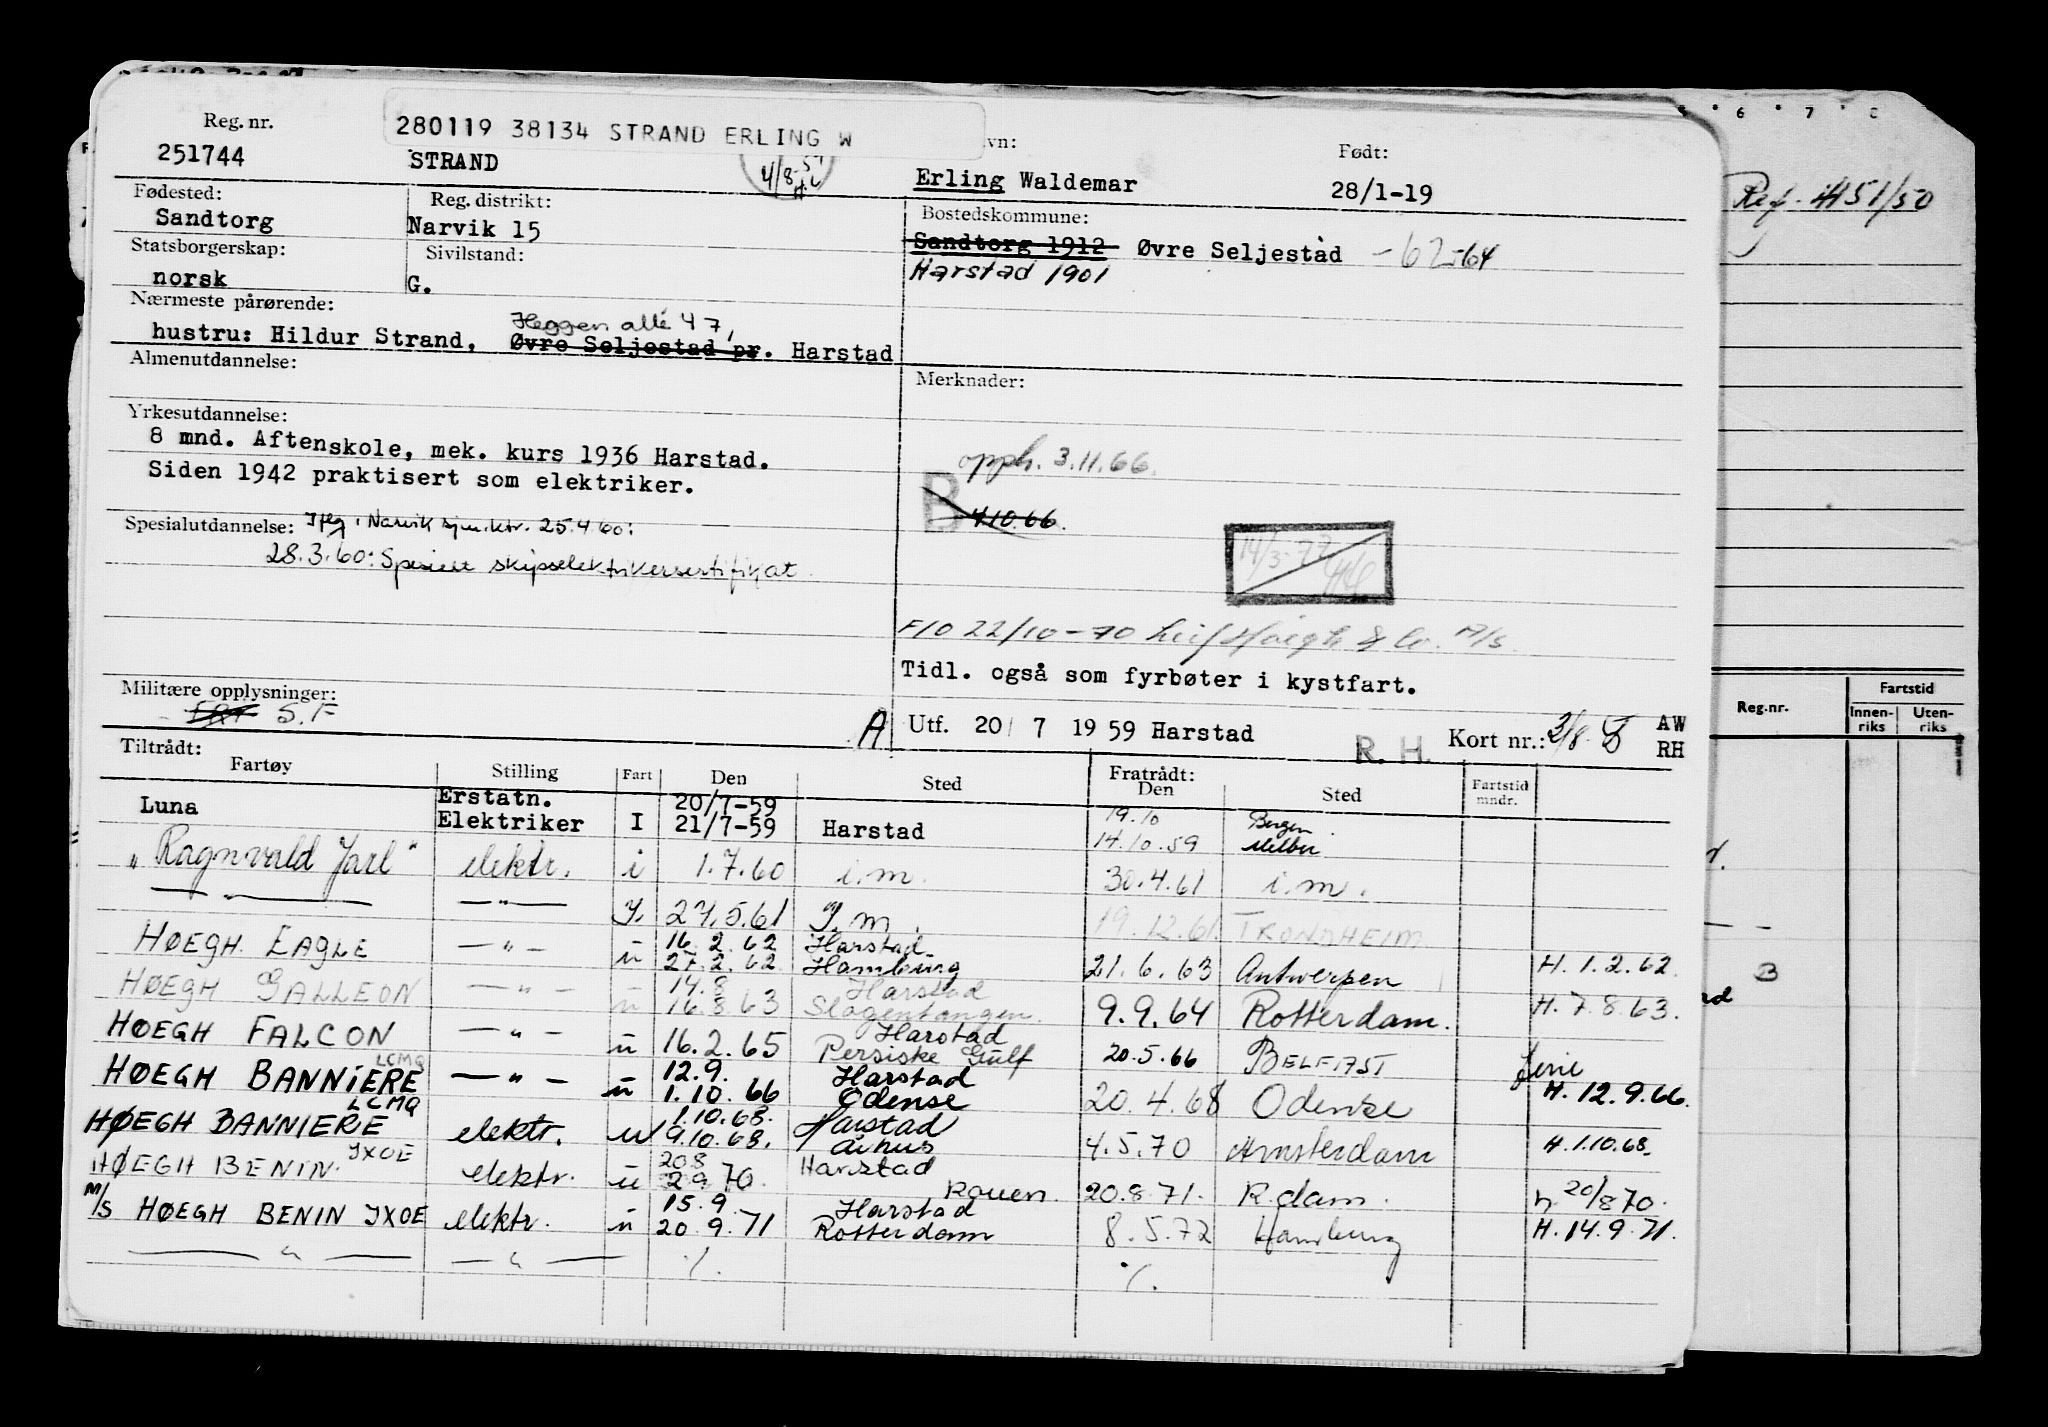 280119 38134 STRAND ERLING W
Reg. nr. vn: Født:
251744 STRAND Erling Waldemar 28/1-19
Fødested: Reg. distrikt: Bostedskommune:
Sandtorg Narvik 15 Sandtorg 1912 Øvre Seljestad - 62-64
Statsborgerskap: Sivilstand: Harstad 1901
norsk G.
Nærmeste pårørende:
Heggen allé 47,
hustru: Hildur Strand, Øvre Seljestad pr. Harstad
Almenutdannelse: Merknader:
Yrkesutdannelse:
8 mnd. Aftenskole, mek. kurs 1936 Harstad.
Siden 1942 praktisert som elektriker.
opph. 3.11.66.
B 4.10.66.
Spesialutdannelse: Iflg. Narvik sjm.ktr. 25.4.60:
28.3.60: Spesiell skipselektrikersertifikat.
14/3-72
F/O 22/10-70 Leif Höegh & Co. A/S.
Tidl. også som fyrbøter i kystfart.
Militære opplysninger:
S.F
A Utf. 20/ 7 19 59 Harstad R. H. Kort nr.: AW
RH
Tiltrådt: Fratrådt:
Fartøy Stilling Fart Den Sted Den Sted Fartstid mndr.
Luna Erstatn. Elektriker I 20/7-59 21/7-59 Harstad 19.10 14.10.59 Bergen. Melbu
"Ragnvald Jarl" elektr. i 1.7.60 i.m. 30.4.61 i.m.
— " — — " — I. 27.5.61 I.m. 19.12.61. TRONDHEIM
HØEGH EAGLE — " — u 16.2.62 27.2.62 Harstad Hamburg 21.6.63 Antwerpen H. 1.2.62.
HØEGH GALLEON — " — u 14.8 16.8.63 Harstad Slagentangen. 9.9.64 Rotterdam. H. 7.8.63.
HØEGH FALCON — " — u 16.2.65 Harstad Persiske Gulf 20.5.66 BELFAST ferie
HØEGH BANNIERE LCMQ — " — u 12.9. 1.10.66 Harstad Odense 20.4.68 Odense H. 12.9.66.
HØEGH BANNIERE LCMQ elektr. u 1.10.68. 9.10.68. Harstad Århus 4.5.70 Amsterdam H. 1.10.68.
HØEGH BENIN. JXOE elektr. u 20.8 2.9.70. Harstad Rouen. 20.8.71. R.dam. h. 20/8 70.
M/S HØEGH BENIN JXOE elektr. u 15.9. 20.9.71 Harstad Rotterdam 8.5.72 Hamburg H. 14.9.71.
— " — — " — ./. ./.
6 7
Ref. 4451/50
Reg.nr. Fartstid
Innen-riks Uten-riks
B